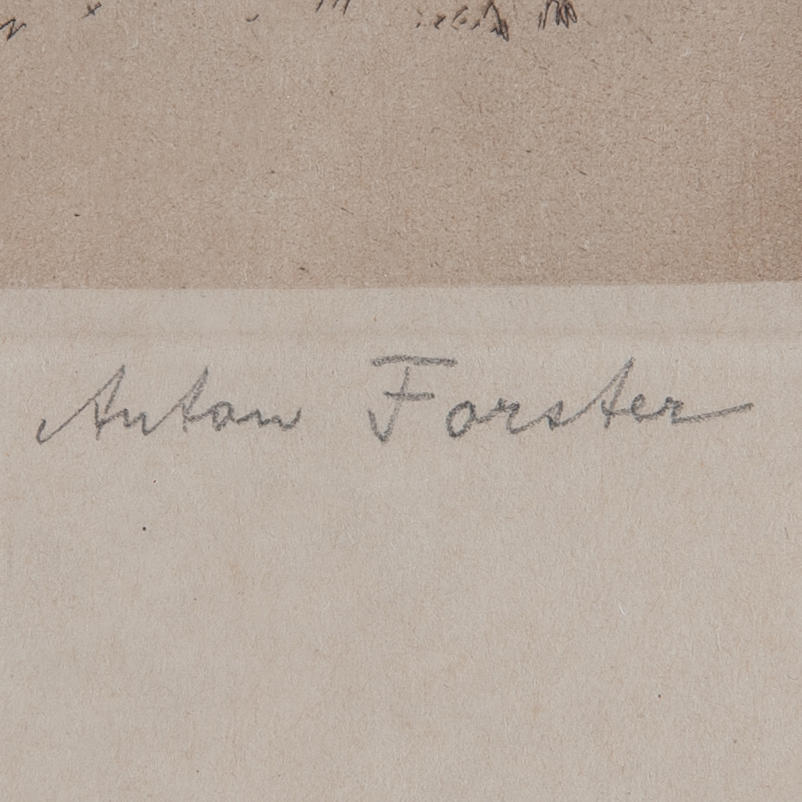 Anton Forster